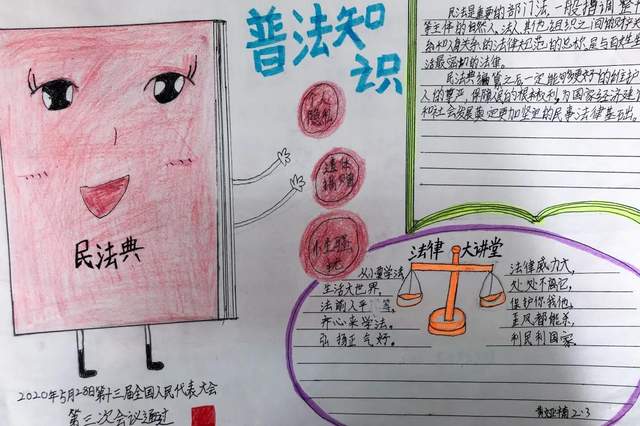 普法知
识
民法典
个人
隐私
遗体
捐赠
性骚
扰
2020年5月28日第十三届全国人民代表大会
第三次会议通过
民法是重要的部门法,一般指调整
等主体的自然人、法人、其他组织之间的财产
和人身关系的法律规范的总称,是与百姓生
活最密切的法律。
民法典编纂之后一定能够更好的
人的尊严,保障民的根本权利,为国家经济建
和社会发展奠定更加坚实的民事法律基石出。
法律 大讲堂
从小要学法,
生活大世界,
法前人平等,
齐心来学法。
弘扬正气好。
法律威力大,
处处不离它,
保护你我他,
歪风都能杀,
利民利国家。
2.3